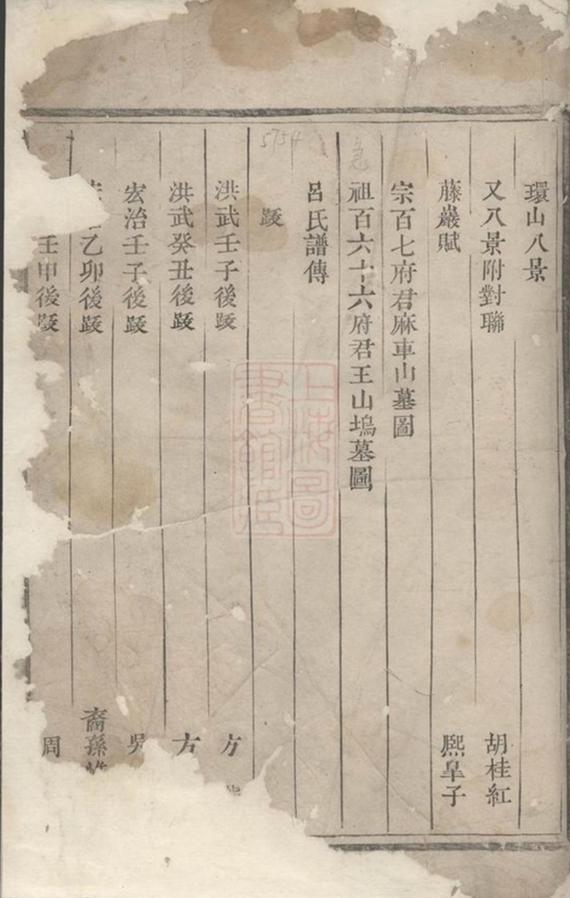 環山八景
又八景附對聯 胡桂紅
藤巖賦 熈臯子
宗百七府君麻車山墓圖
祖百六十六府君王山塢墓圖
呂氏譜傳
跋
洪武壬子後跋 方
洪武癸丑後跋 方
宏治壬子後跋 吳
乙卯後跋 裔孫
壬申後跋 周
5754
上海圖書館藏